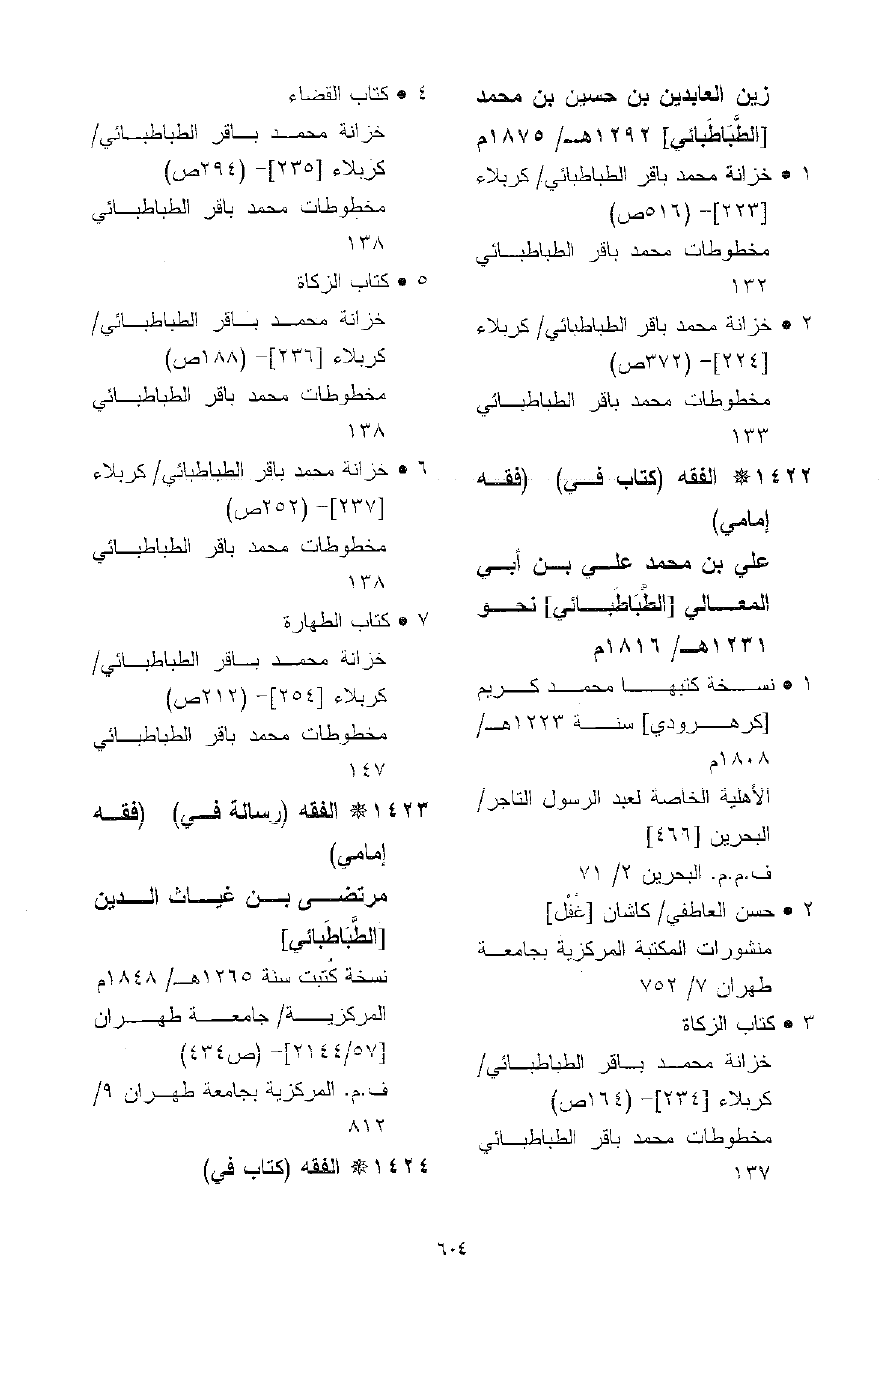 زين العابدين بن حسين بن محمد
[الطَّبَاطَبائي] ١٢٩٢هـ/ ١٨٧٥م
١ • خزانة محمد باقر الطباطبائي/ كربلاء
[٢٢٣]- (٥١٦ص)
مخطوطات محمد باقر الطباطبائي
١٣٢
٢ • خزانة محمد باقر الطباطبائي/ كربلاء
[٢٢٤]- (٣٧٢ص)
مخطوطات محمد باقر الطباطبائي
١٣٣
١٤٢٢* الفقه (كتاب في) (فقه
إمامي)
علي بن محمد علي بن أبي
المعالي [الطَّبَاطَبائي] نحو
١٢٣١هـ/ ١٨١٦م
١ • نسخة كتبها محمد كريم
[كرهرودي] سنة ١٢٢٣هـ/
١٨٠٨م
الأهلية الخاصة لعبد الرسول التاجر/
البحرين [٤٦٦]
ف.م.م. البحرين ٢/ ٧١
٢ • حسن العاطفي/ كاشان [غُفْل]
منشورات المكتبة المركزية بجامعة
طهران ٧/ ٧٥٢
٣ • كتاب الزكاة
خزانة محمد باقر الطباطبائي/
كربلاء [٢٣٤]- (١٦٤ص)
مخطوطات محمد باقر الطباطبائي
١٣٧
٤ • كتاب القضاء
خزانة محمد باقر الطباطبائي/
كربلاء [٢٣٥]- (٢٩٤ص)
مخطوطات محمد باقر الطباطبائي
١٣٨
٥ • كتاب الزكاة
خزانة محمد باقر الطباطبائي/
كربلاء [٢٣٦]- (١٨٨ص)
مخطوطات محمد باقر الطباطبائي
١٣٨
٦ • خزانة محمد باقر الطباطبائي/ كربلاء
[٢٣٧]- (٢٥٢ص)
مخطوطات محمد باقر الطباطبائي
١٣٨
٧ • كتاب الطهارة
خزانة محمد باقر الطباطبائي/
كربلاء [٢٥٤]- (٢١٢ص)
مخطوطات محمد باقر الطباطبائي
١٤٧
١٤٢٣* الفقه (رسالة في) (فقه
إمامي)
مرتضى بن غياث الدين
[الطَّبَاطَبائي]
نسخة كُتبت سنة ١٢٦٥هـ/ ١٨٤٨م
المركزية/ جامعة طهران
[٢١٤٤/٥٧]- (ص٤٣٤)
ف.م. المركزية بجامعة طهران ٩/
٨١٢
١٤٢٤* الفقه (كتاب في)
٦٠٤